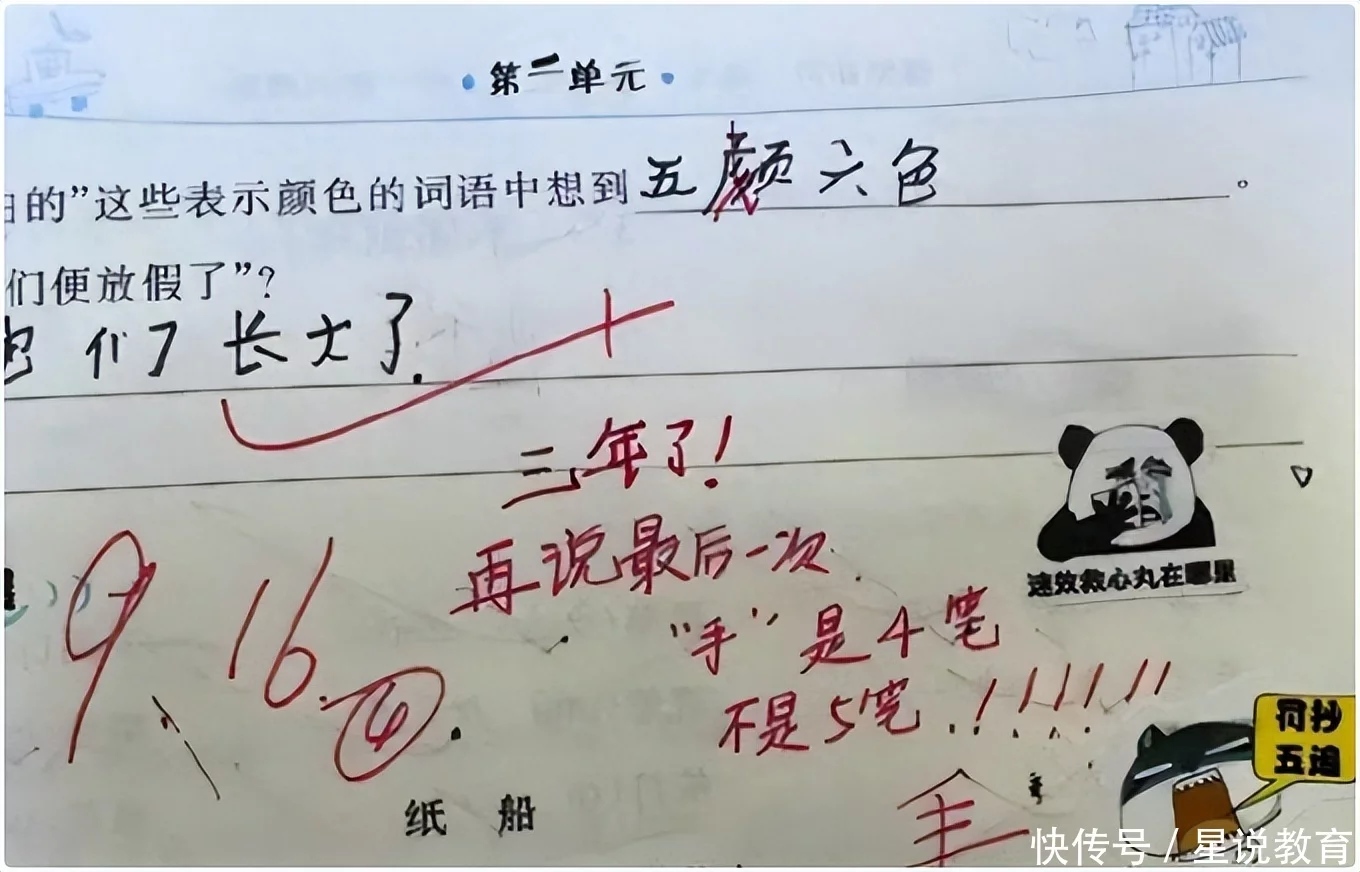 ·第二单元·
的”这些表示颜色的词语中想到五颜六色。
们便放假了”？
们了长大了.
三年了！
再说最后一次.
“手”是4笔
不是5笔.！！！！！！
速效救心丸在哪里
9、16.④.
罚抄
五遍
纸 船
快传号 / 星说教育